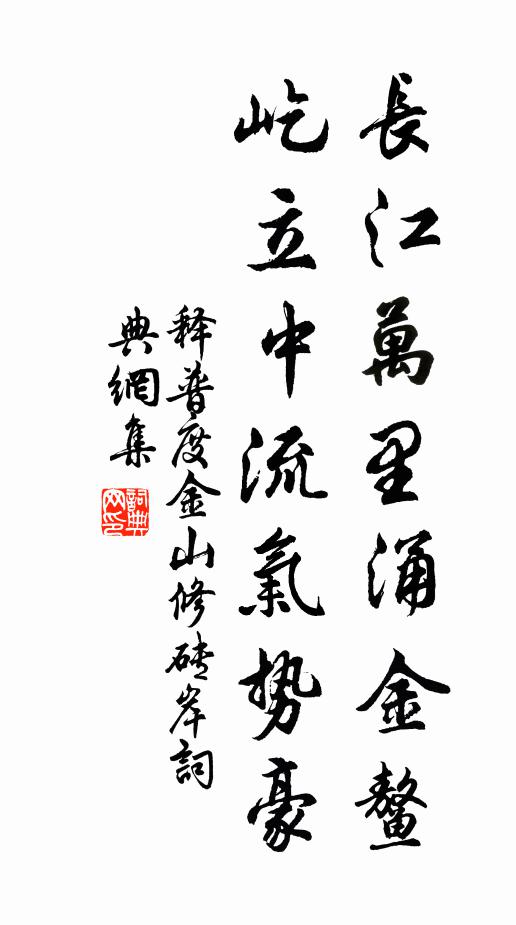 長江萬里涌金鰲
屹立中流氣勢豪
释普度金山修砖岸詞
典網集
詞典網印